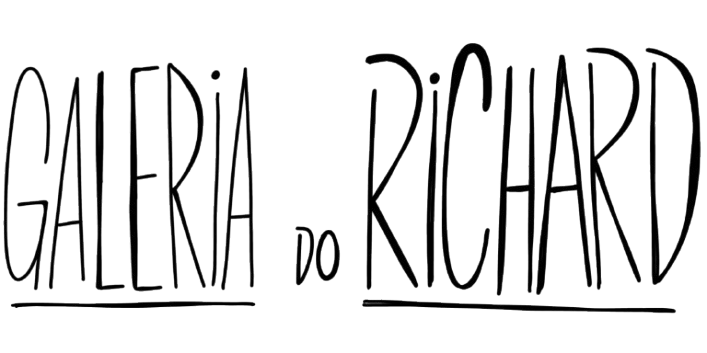 GALERiA DO RiCHARD